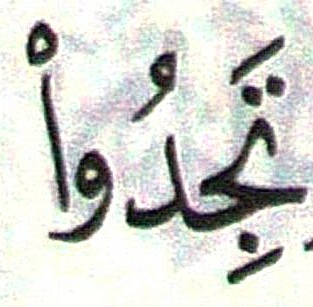 تَجِدُواْ